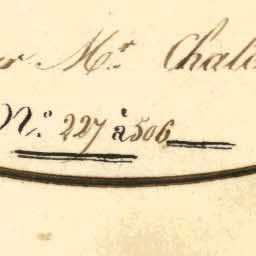 Mr. Chal
No. 227 à 506